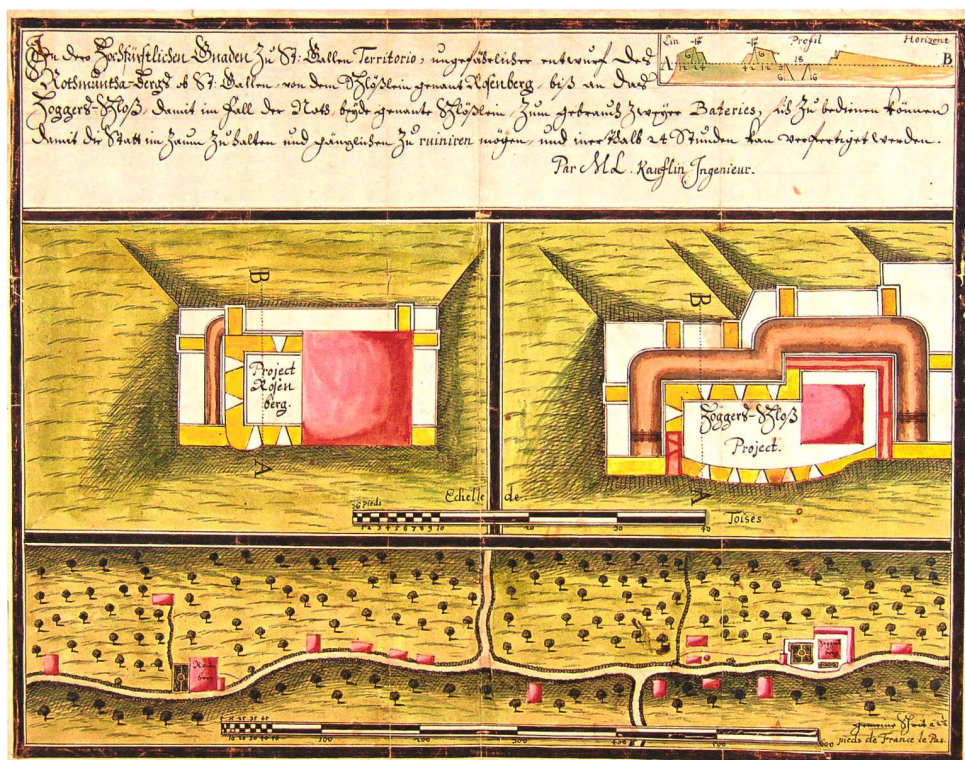 In dero Hochfürstlichen Gnaden Zu St: Gallen Territorio, ungefährlicher entwurf des
Rothmuntha-Bergs ob St: Gallen, von dem Schlößlein genant Rosenberg, biß an das
Hoggers-Schloß, damit im fall der Noth, beyde genante Schlößlein, Zum gebrauch zweyer Bateries, sich Zu bedienen können
damit die Statt im Zaum Zu halten und gänzlichen Zu ruiniren mögen, und inerthalb 24 Stunden kan verfertiget werden.
Par M L. Kauflin Ingenieur.
Lin Profil Horizont
A B
B
Project
Rosen
berg.
A
B
Hoggers-Schloß
Project.
A
Echelle de
36 pieds
1 2 3 4 5 6 7 8 9 10 20 30 40
Toises
Rosen
berg
100 200 300 400 500 600
gemeine Schrit a 2½
pieds de France le Pas.